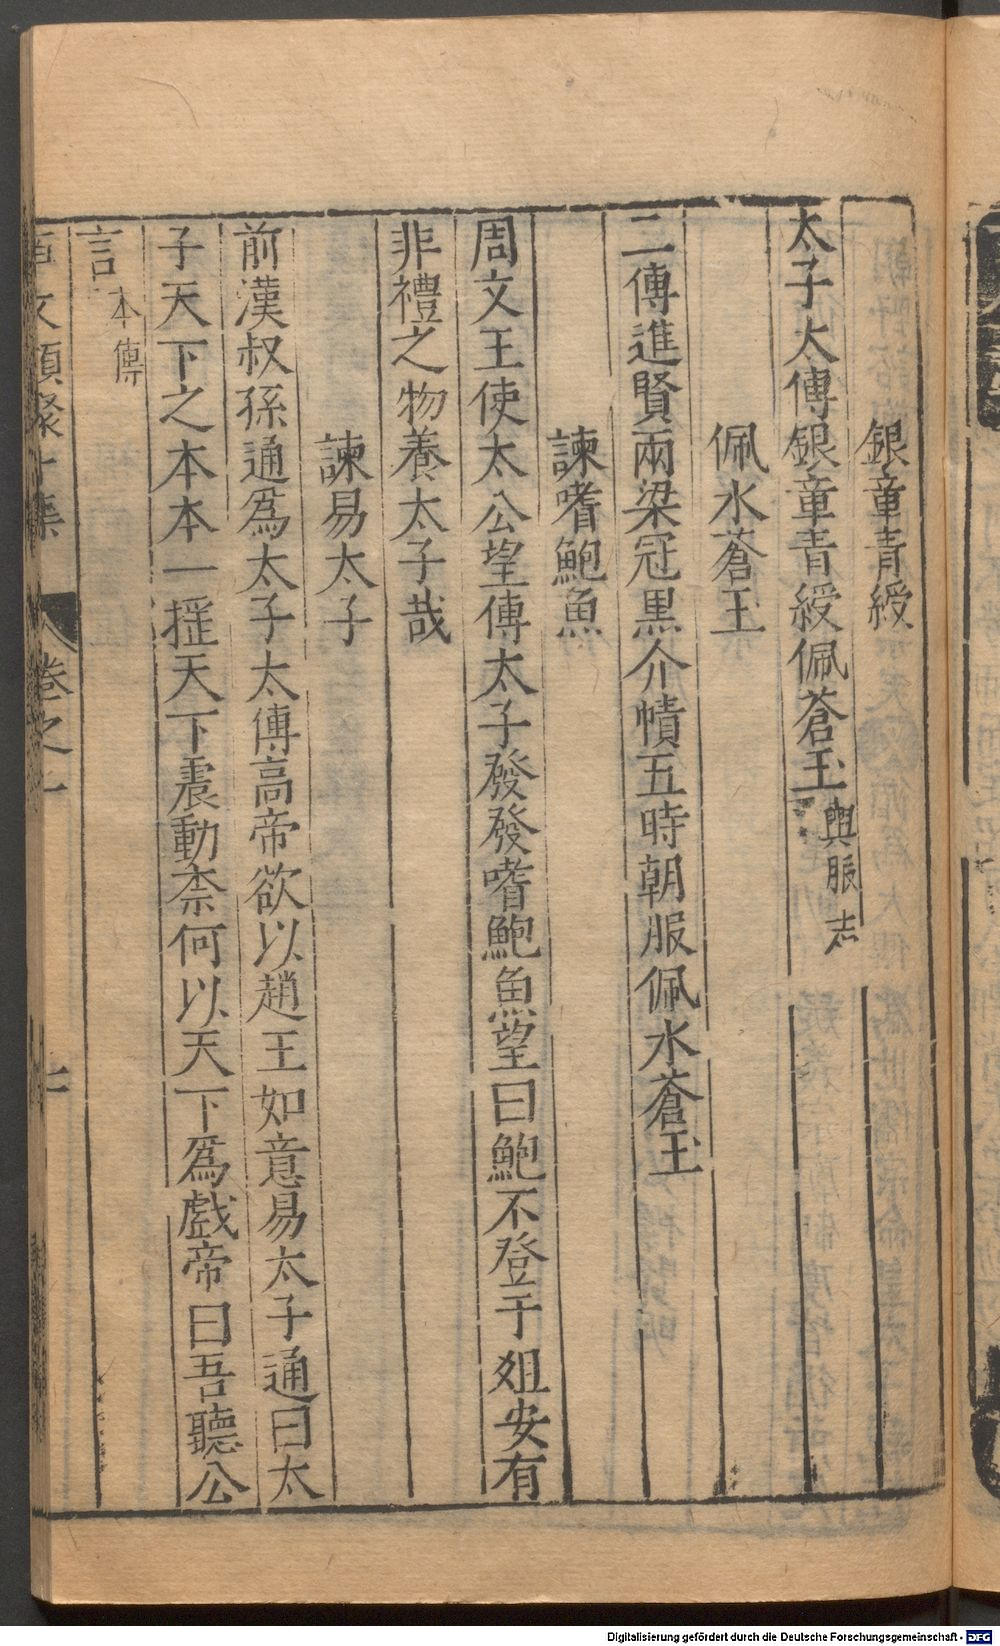 銀章青綬
太子太傅銀章青綬佩蒼玉輿服志
佩水蒼玉
二傅進賢兩梁冠黒介幘五時朝服佩水蒼玉
諫嗜鮑魚
周文王使太公望傅太子發發嗜鮑魚望曰鮑不登于俎安有
非禮之物養太子哉
諫易太子
前漢叔孫通爲太子太傅高帝欲以趙王如意易太子通曰太
子天下之本本一揺天下震動柰何以天下爲戲帝曰吾聽公
言本傳
事文類聚 集 卷之
Digitalisierung gefördert durch die Deutsche Forschungsgemeinschaft - DFG